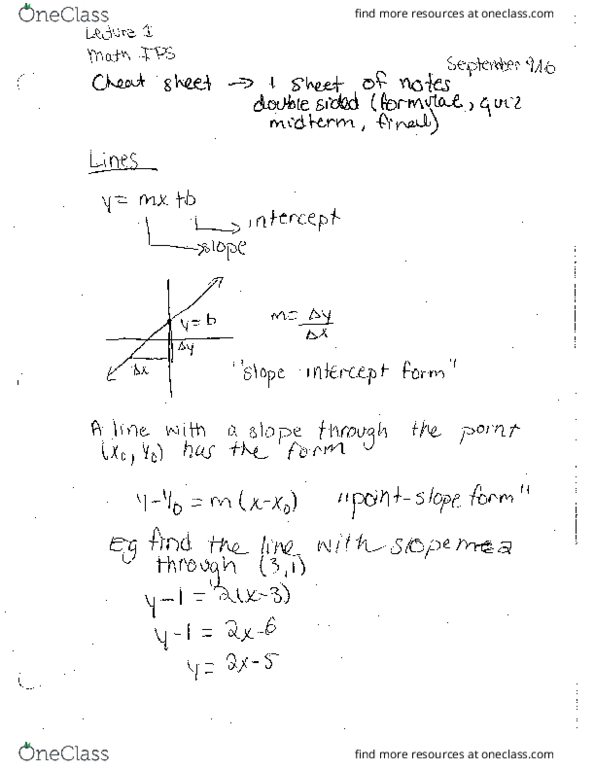 OneClass
find more resources at oneclass.com
Lecture 1
Math IPS
September 9/16
Cheat sheet → 1 sheet of notes
double sided (formulae, quiz
midterm, final)
Lines
y = mx + b
intercept
slope
y = b
Δy
Δx
m = Δy
Δx
"slope-intercept form"
A line with a slope through the point
(x₀, y₀) has the form
y - y₀ = m(x-x₀) "point-slope form"
Eg find the line with slope m=2
through (3,1)
y-1 = 2(x-3)
y-1 = 2x-6
y = 2x-5
OneClass
find more resources at oneclass.com